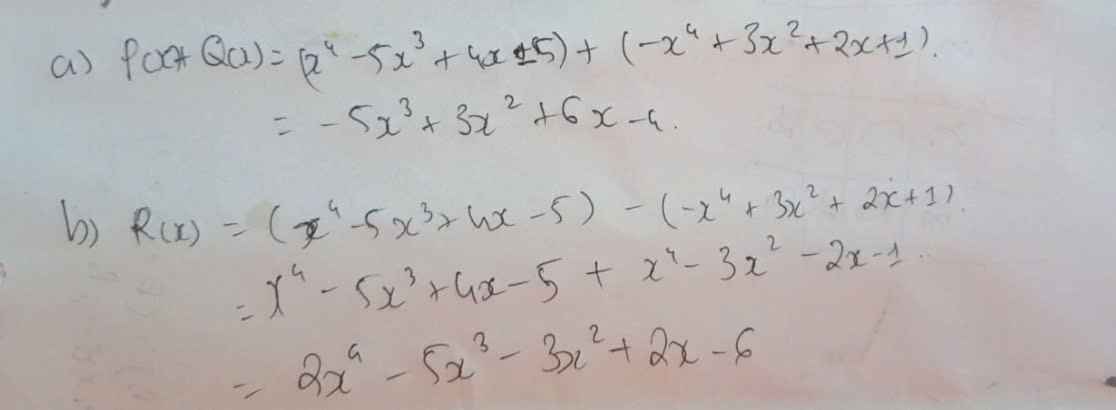 a) P(x)+ Q(x) = (x⁴ -5x³ + 4x -5) + (-x⁴ + 3x² + 2x + 1).
= -5x³ + 3x² + 6x - 4.
b) R(x) = (x⁴ -5x³ + 4x - 5) - (-x⁴ + 3x² + 2x + 1).
= x⁴ - 5x³ + 4x - 5 + x⁴ - 3x² - 2x - 1.
= 2x⁴ - 5x³ - 3x² + 2x - 6